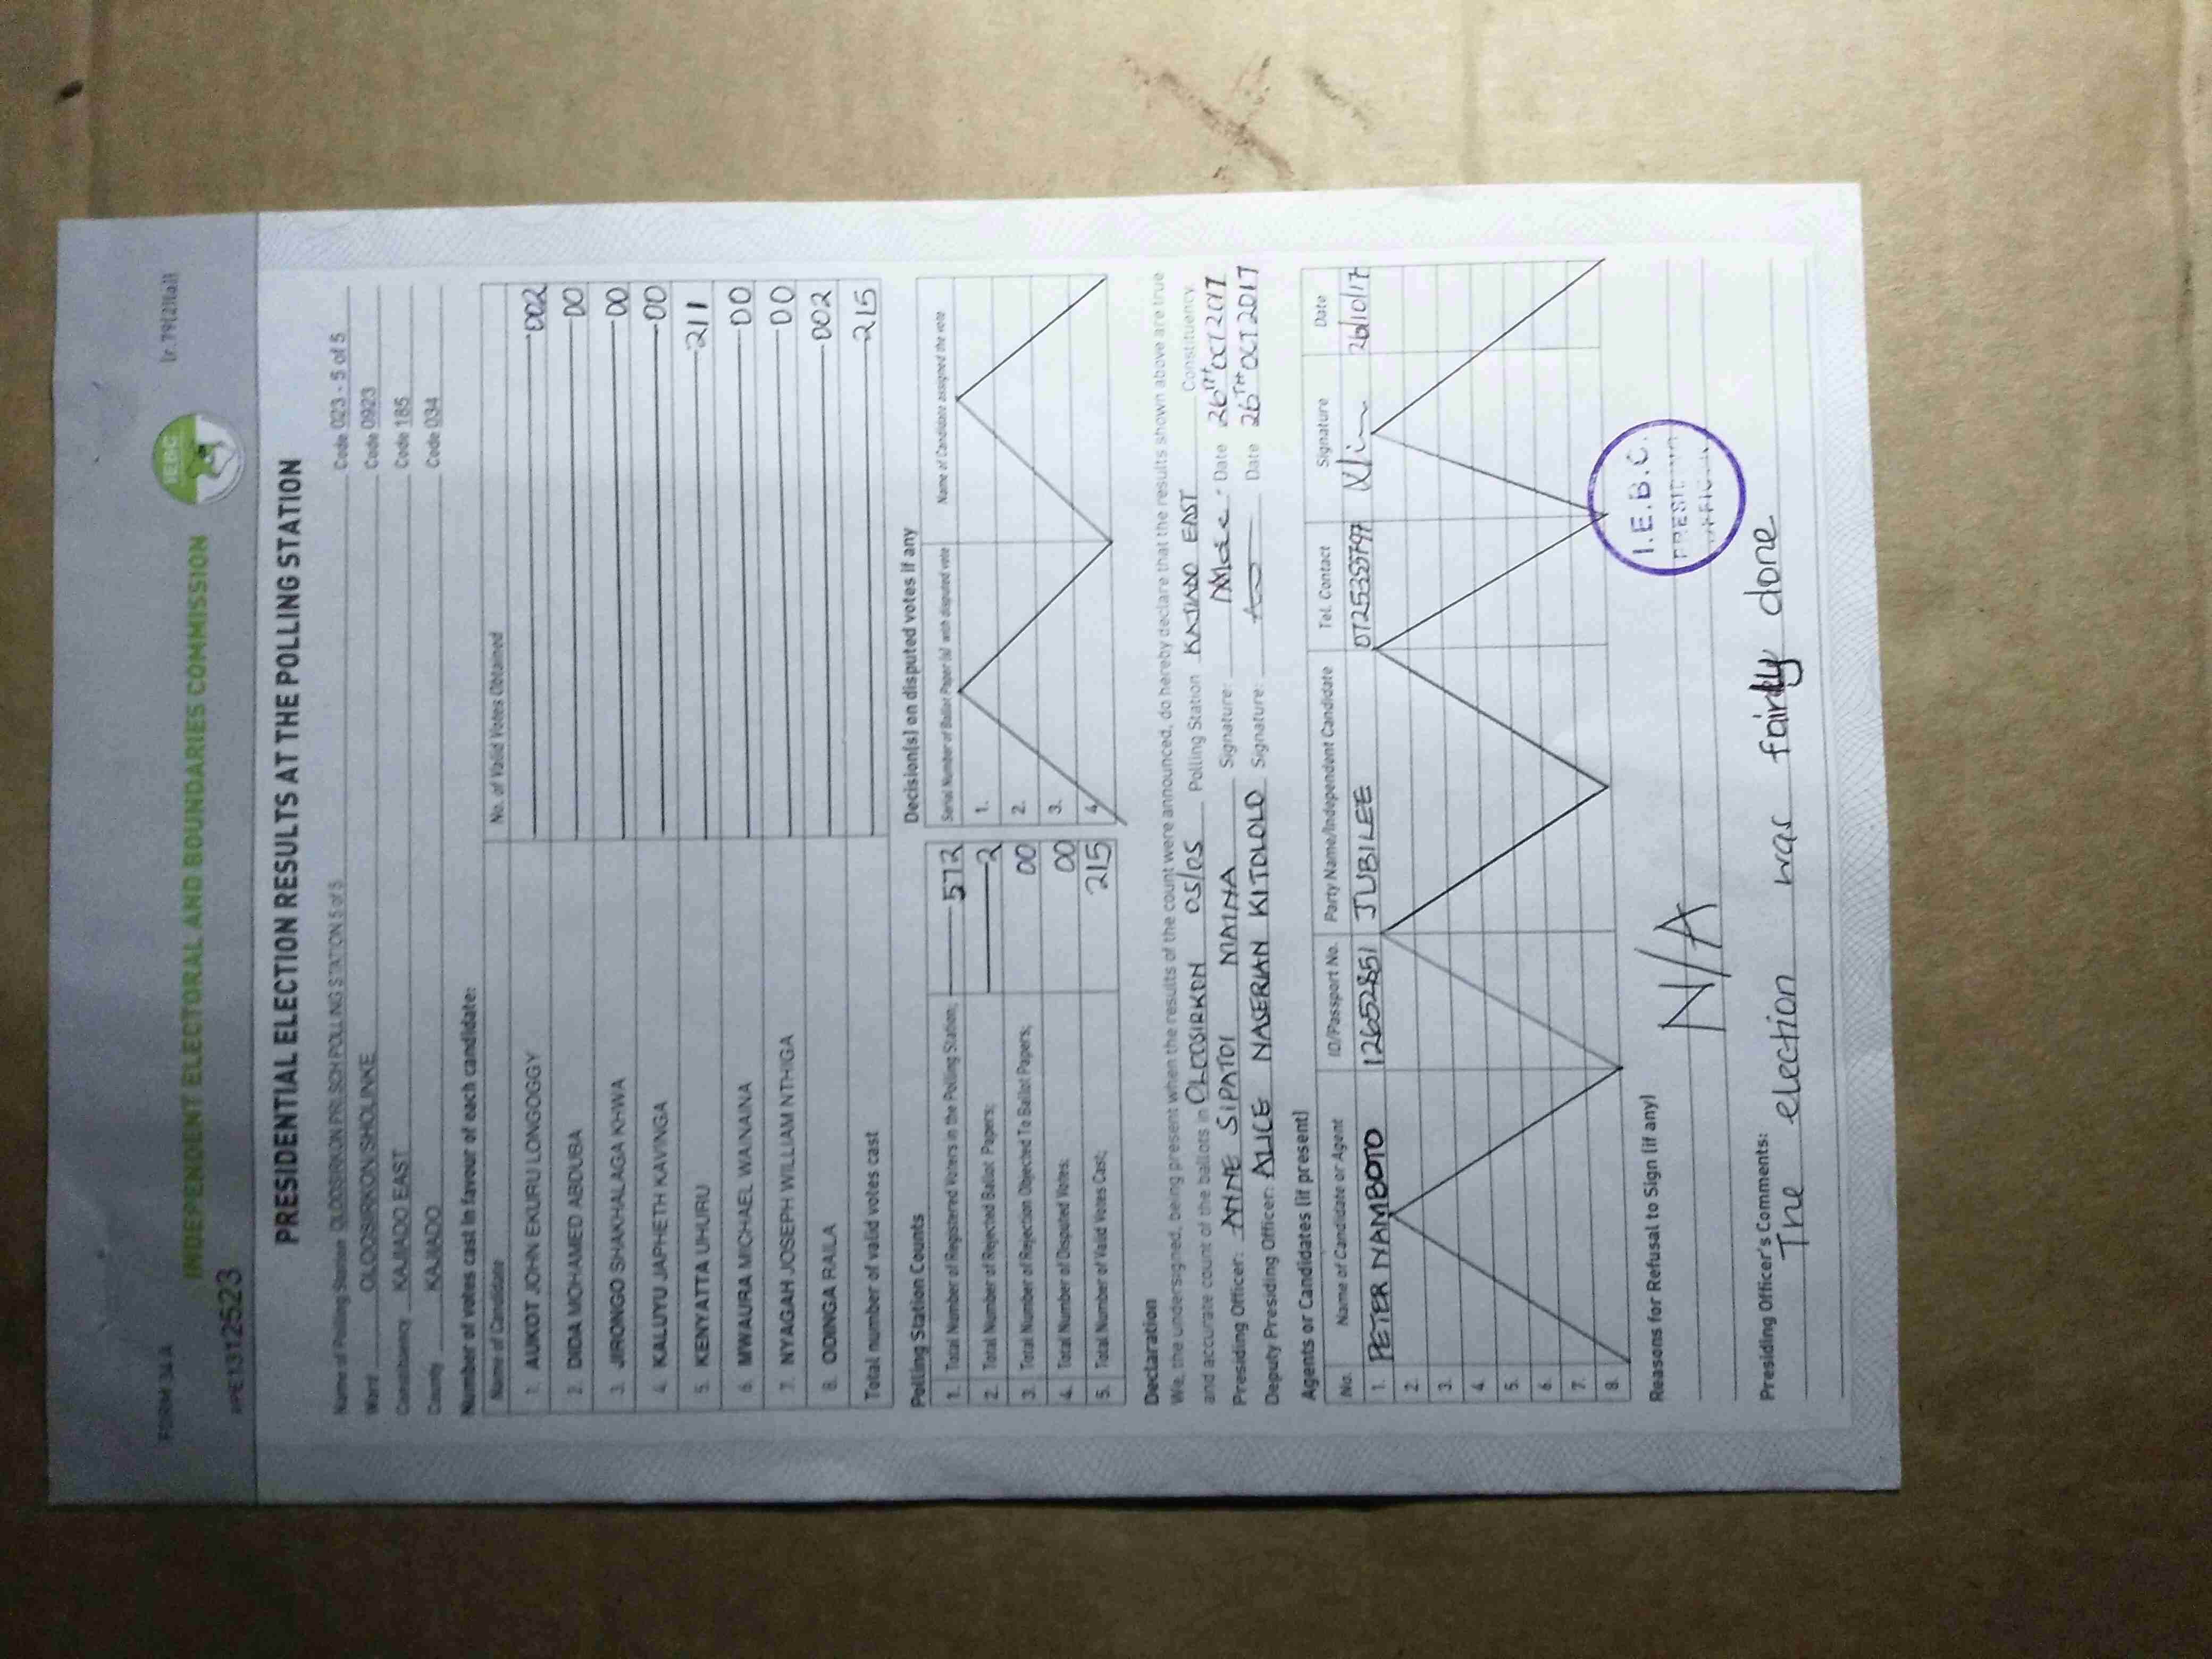 FORM 34 A (r.79(2)(a))
INDEPENDENT ELECTORAL AND BOUNDARIES COMMISSION IEBC
#PE1312523
PRESIDENTIAL ELECTION RESULTS AT THE POLLING STATION
Name of Polling Station OLOOSIRKON PRI SCH POLLING STATION 5 of 5 Code 023 - 5 of 5
Ward OLOOSIRKON/SHOLINKE Code 0923
Constituency KAJIADO EAST Code 185
County KAJIADO Code 034
Number of votes cast in favour of each candidate:
Name of Candidate No. of Valid Votes Obtained
1. AUKOT JOHN EKURU LONGOGGY 002
2. DIDA MOHAMED ABDUBA 00
3. JIRONGO SHAKHALAGA KHWA 00
4. KALUYU JAPHETH KAVINGA 00
5. KENYATTA UHURU 211
6. MWAURA MICHAEL WAINAINA 00
7. NYAGAH JOSEPH WILLIAM NTHIGA 00
8. ODINGA RAILA 002
Total number of valid votes cast 215
Polling Station Counts
1. Total Number of Registered Voters in the Polling Station; 572
2. Total Number of Rejected Ballot Papers; 2
3. Total Number of Rejection Objected To Ballot Papers; 00
4. Total Number of Disputed Votes; 00
5. Total Number of Valid Votes Cast; 215
Decision(s) on disputed votes if any
Serial Number of Ballot Paper (s) with disputed vote Name of Candidate assigned the vote
1.
2.
3.
4.
Declaration
We, the undersigned, being present when the results of the count were announced, do hereby declare that the results shown above are true
and accurate count of the ballots in OLOOSIRKON 05/05 Polling Station KAJIADO EAST Constituency.
Presiding Officer: ANNE SIPATOI MAINA Signature: Date 26TH OCT 2017
Deputy Presiding Officer: ALICE NASERIAN KITOLOLO Signature: Date 26TH OCT 2017
Agents or Candidates (if present)
No. Name of Candidate or Agent ID/Passport No. Party Name/Independent Candidate Tel. Contact Signature Date
1. PETER NAMBOTO 12652851 JUBILEE 26/10/17
2.
3.
4.
5.
6.
7.
8.
I.E.B.C.
PRESIDING
OFFICER
Reasons for Refusal to Sign (if any)
N/A
Presiding Officer's Comments:
The election was fairly done